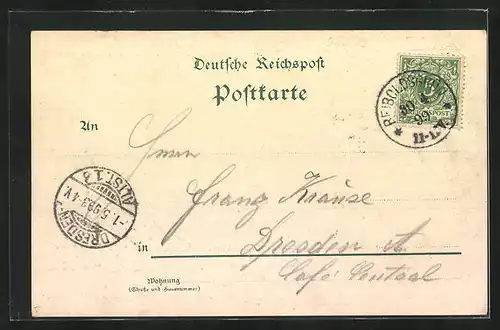 Deutsche Reichspost
Postkarte
REIBOLDSGRÜN
30 4
99
11-12V.
An
Herrn
Franz Krause
in Dresden A
Café Central
DRESDEN
ALTST. 1.
-1.5.99. 3-4V.
Wohnung
(Straße und Hausnummer)